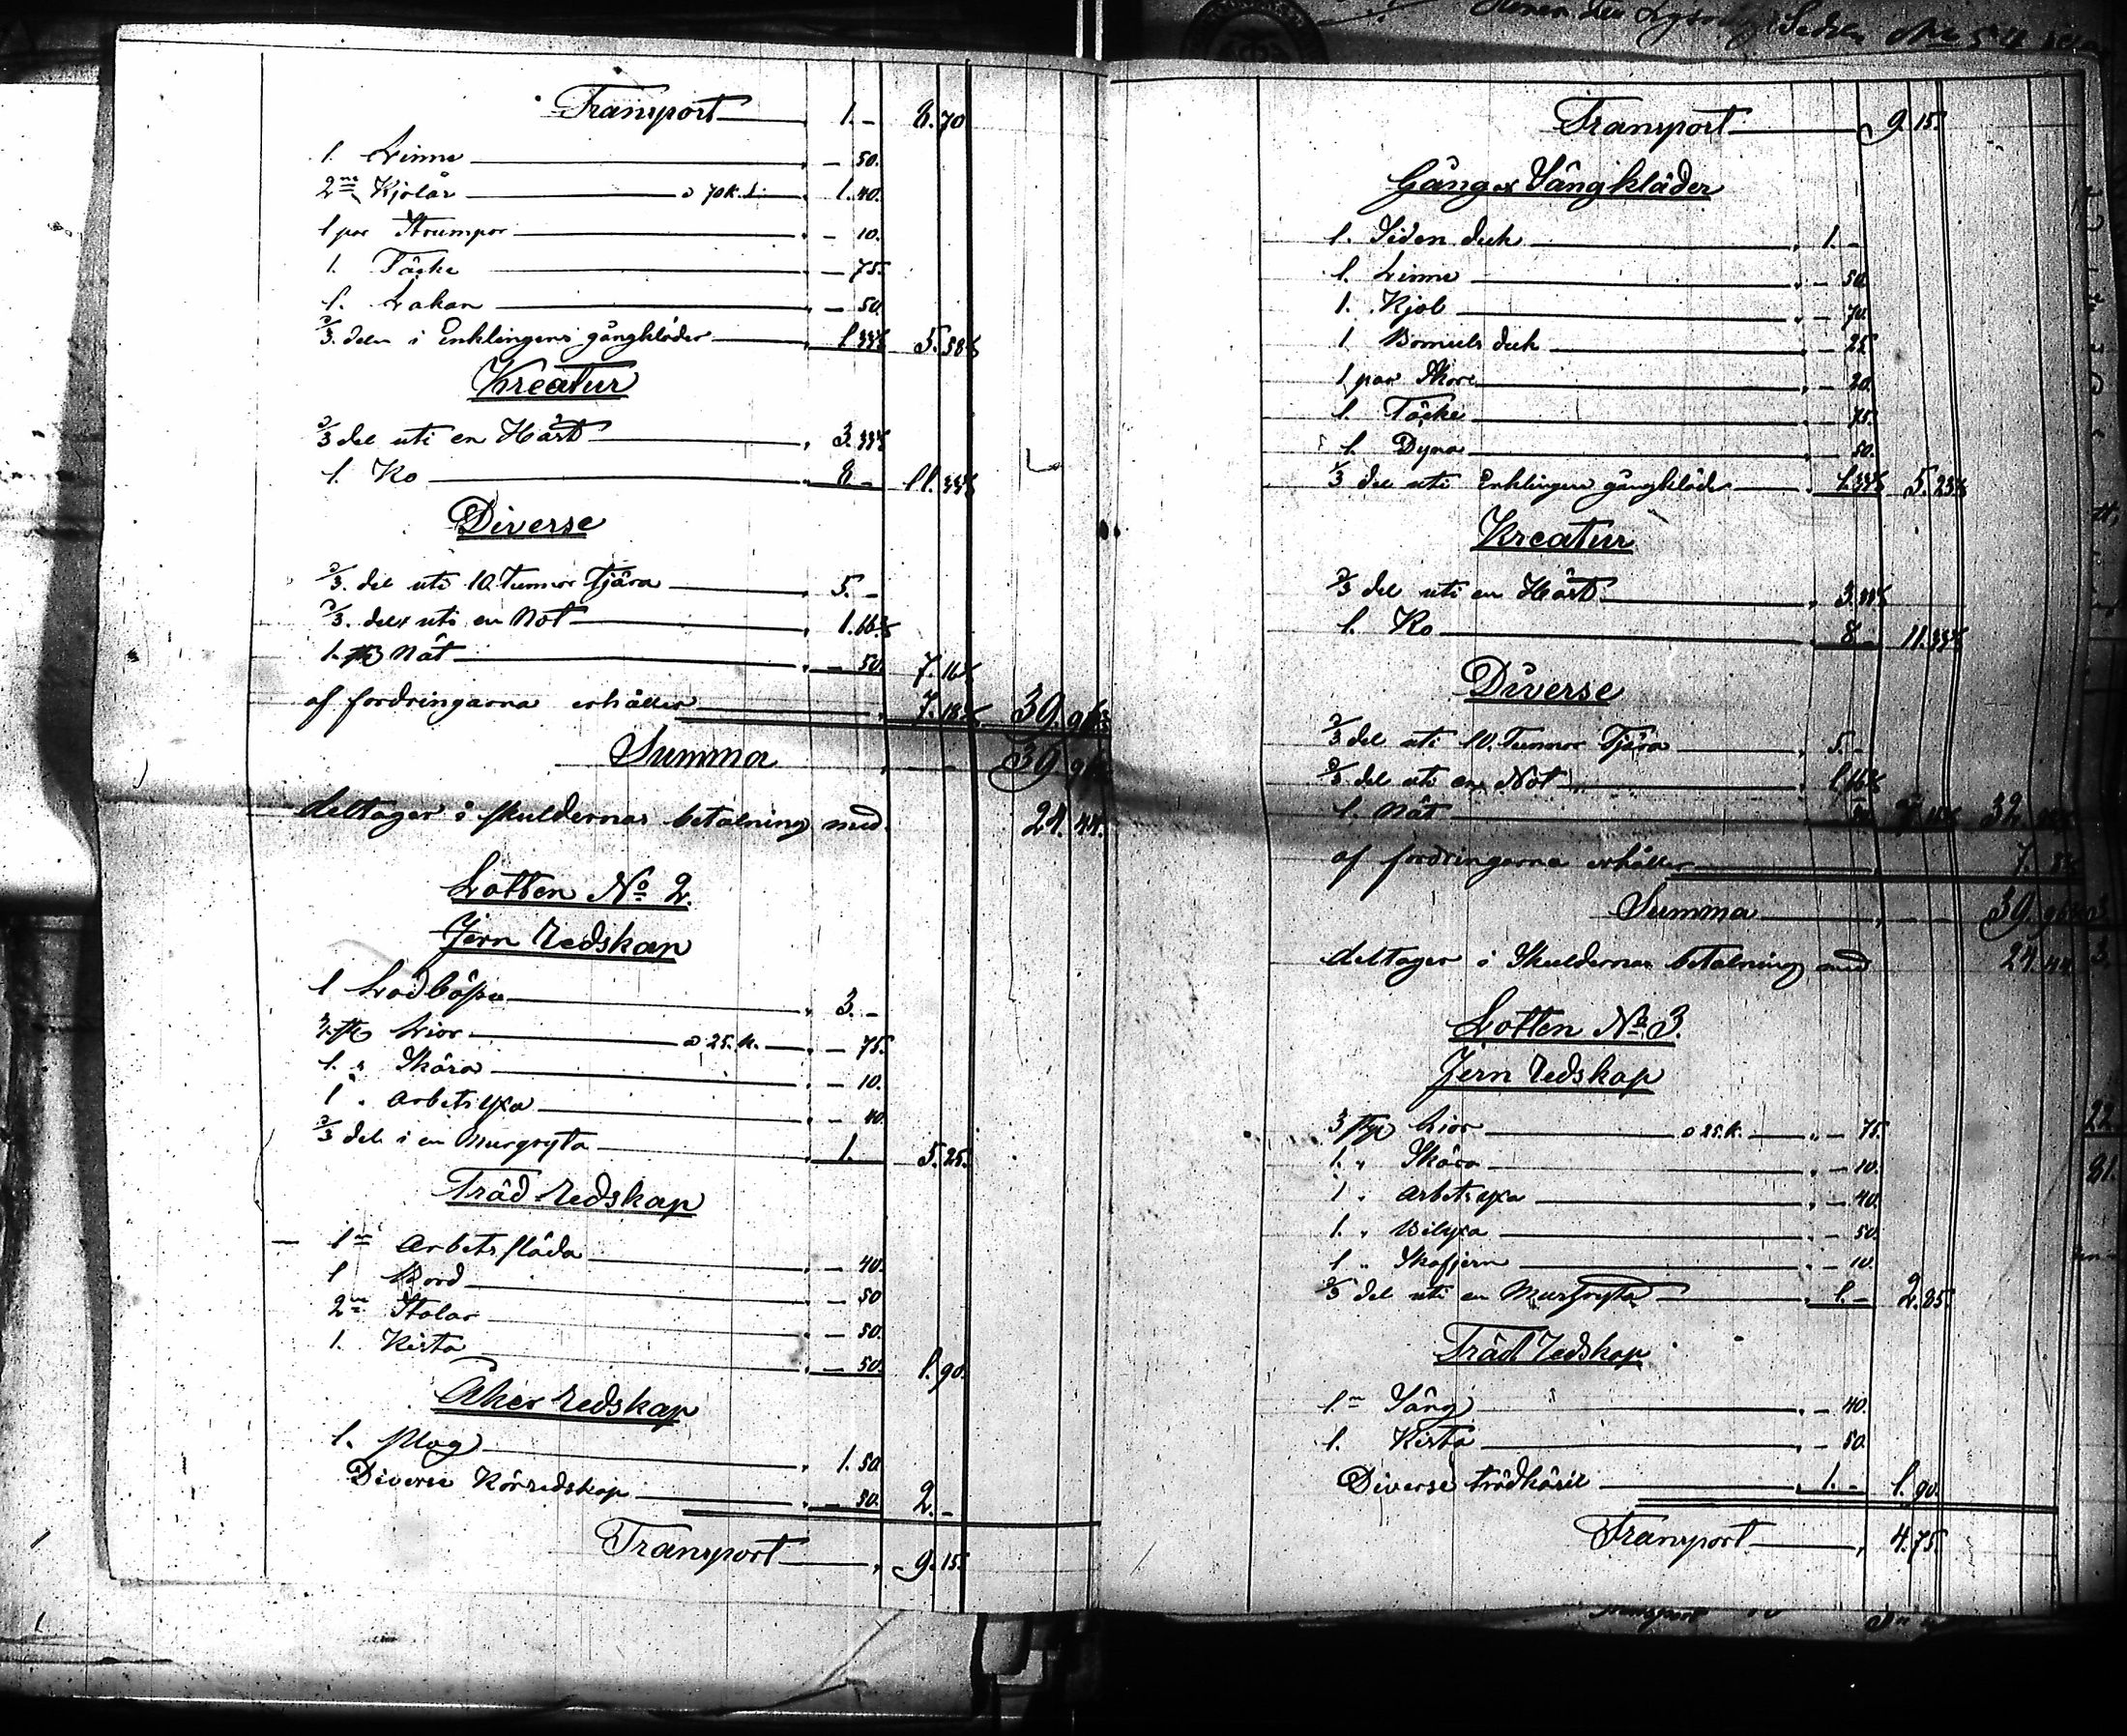 Transport 1.- 8.70
1. Linne - 50.
2ne Kjolar a 70 k. 1.40.
1 par Strumpor - 10.
1. Täcke - 75.
1. Lakan - 50.
2/3. delen i Enklingens gångkläder 1.33⅓ 5.58⅓
Kreatur
2/3 del uti en Häst 3.33⅓
1. Ko 8 - 11.33⅓
Diverse
2/3. del uti 10 Tunnor Tjära 5. -
2/3. delen uti en Not 1.66⅔
1. st Nät - 50. 7.16⅔
af fordringarna erhåller 7.18 39.96
Summa - - 39.96
deltager i skuldernas betalning med 24.44.
Lotten No 2.
Jern Redskap
1 Lodbössa 3. -
3. st Lior a 25. k. - 75.
1. " Skära - 10.
1 " Arbetsyxa - 40.
2/3 del i en Murgryta 1. 5.25.
Träd Redskap
1n Arbetssläda - 40.
1 Bord - 50
2ne Stolar - 50.
1. Kista - 50. 1.90.
Åker Redskap
1. Plog 1.50
Diverse Körredskap - 50. 2. -
Transport 9.15.
Transport 9.15.
Gång o Sängkläder
1. Siden duk 1. -
1. Linne - 50.
1. Kjol - 70.
1 Bomuls duk - 25.
1 par Skor - 20.
1. Täcke - 75.
1. Dyna - 50.
1/3 del uti Enklingens gångkläder 1.33⅓ 5.23⅓
Kreatur
2/3 del uti en Häst 3.33⅓
1. Ko 8 - 11.33⅓
Diverse
2/3 del uti 10. Tunnor Tjära 5. -
2/3 del uti en Not 1.66⅔
1. Nät 50. 7.16⅔ 32.
af fordringarna erhåller 7.
Summa - - 39.96
deltager i Skuldernas betalning med 24.44
Lotten No 3.
Jern Redskap
3 st Lior a 25. k. - 75.
1. " Skära - 10.
1 " Arbetsyxa - 40.
1. " Bilyxa - 50.
1 " Skafjern - 10.
2/3 del uti en Murgryta 1. - 2.85.
Träd Redskap
1n Säng - 40.
1. Kista - 50.
Diverse trädkäril 1. - 1.90.
Transport 4.75.
22.
81.